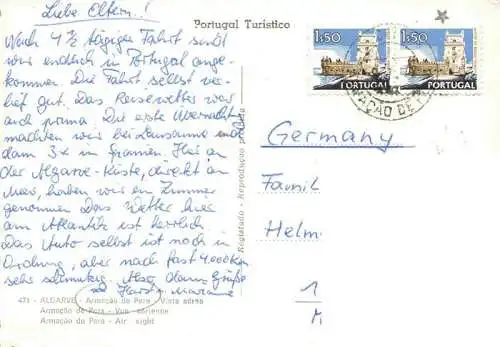 Liebe Eltern..!
Nach 4 1/2 tägiger Fahrt sind
wir endlich in Portugal ange-
kommen. Die Fahrt selbst ver-
lief gut. Das Reisewetter war
auch prima. Die erste Übernacht.
machten wir bei Lausanne und
dann 3x in Spanien. Hier an
der Algarve-Küste, direkt am
Meer, haben wir ein Zimmer
genommen. Das Wetter hier
am Atlantik ist herrlich.
Das Auto selbst ist noch in
Ordnung, aber nach fast 4000 km
sehr schmutzig. Also dann Grüße
Marianne
471 - ALGARVE - Armação de Pera - Vista aérea
Armação de Pera - Vue aérienne
Armação de Pera - Air sight
Portugal Turistico
Registado - Reprodução proibida
1$50
PORTUGAL
1$50
PORTUGAL
MAÇÃO DE P
Germany
Famil
Helm
1